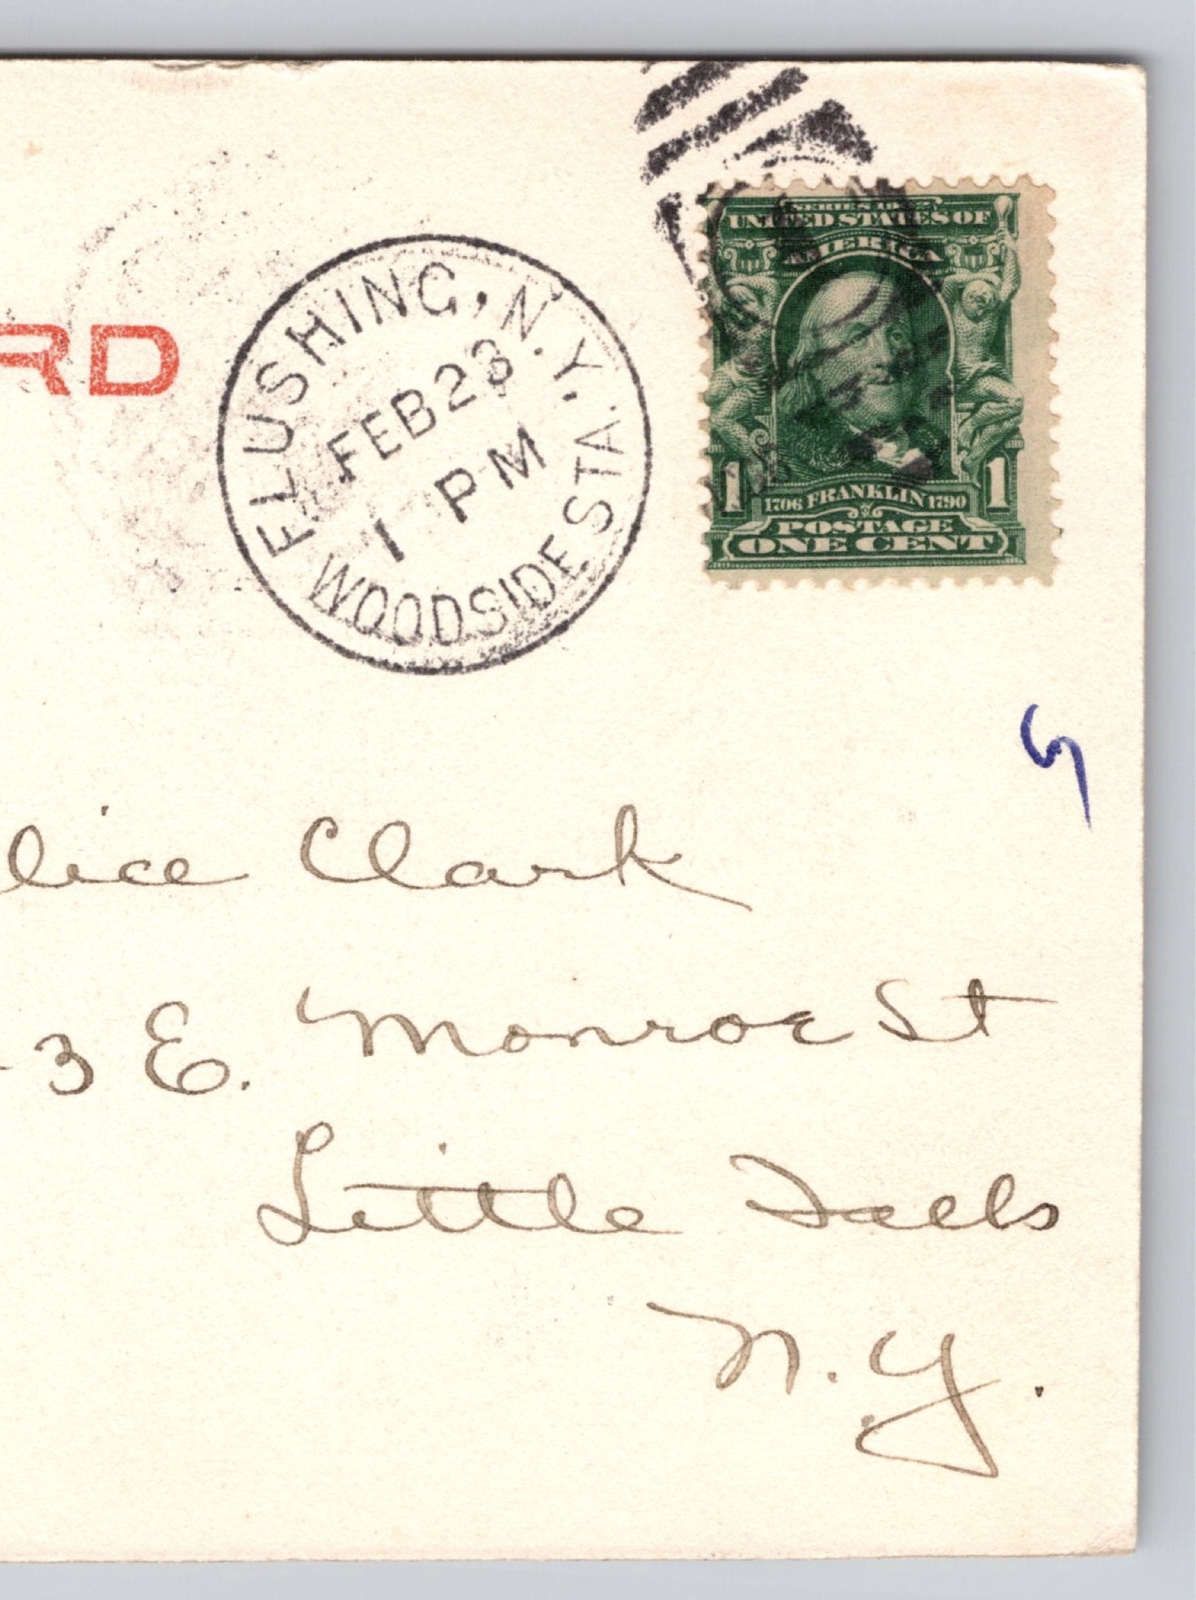 RD
FLUSHING, N.Y.
FEB 23
1 PM
WOODSIDE STA.
UNITED STATES OF
AMERICA
1 1
1706 FRANKLIN 1790
POSTAGE
ONE CENT
lice Clark
3 E. Monroe St
Little Falls
N.Y.